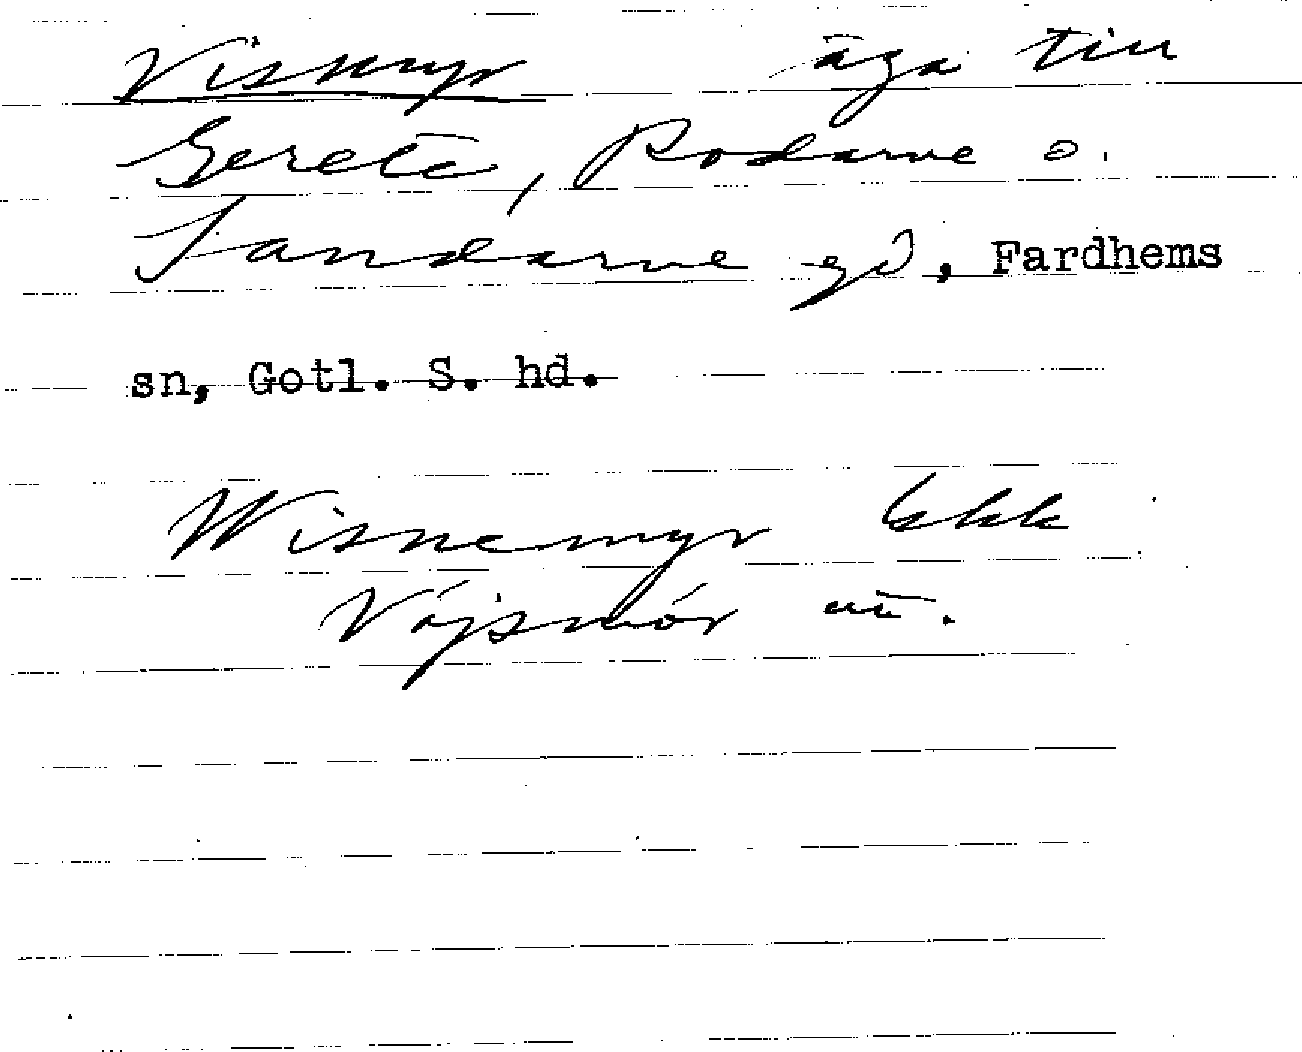 Vismyr äga till
Gerete, Rodarve o.
Sandarve gd, Fardhems
sn, Gotl. S. hd.
Wisnemyr Ekk
Vöjsmör utt.